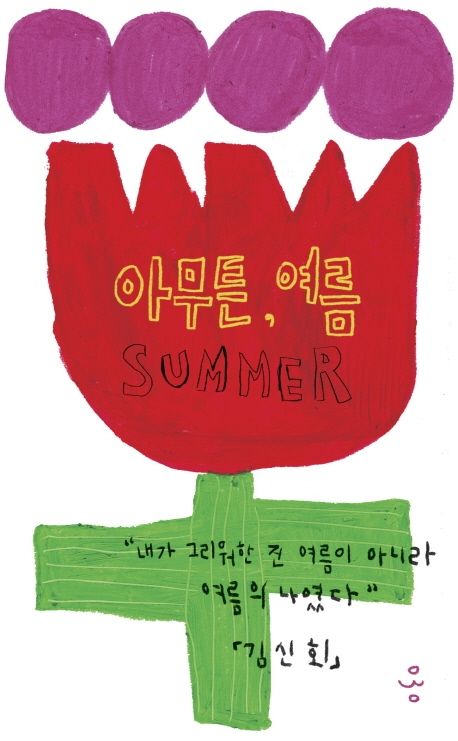 아무튼, 여름
SUMMER
"내가 그리워한 건 여름이 아니라
여름의 나였다"
「김신회」